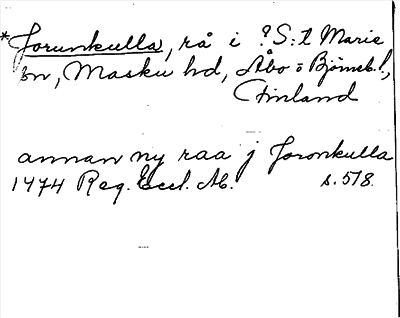 *Jorunkulla, rå i ?S:t Marie
sn, Masku hd, Åbo o Björneb.l.,
Finland
annan ny raa j Joronkulla
1474 Reg. Eccl. Ab. s. 518.